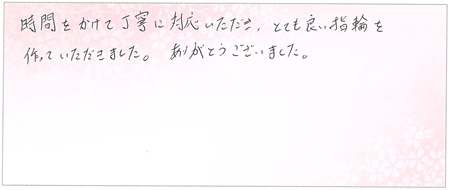 時間をかけて丁寧に対応いただき、とても良い指輪を
作っていただきました。 ありがとうございました。